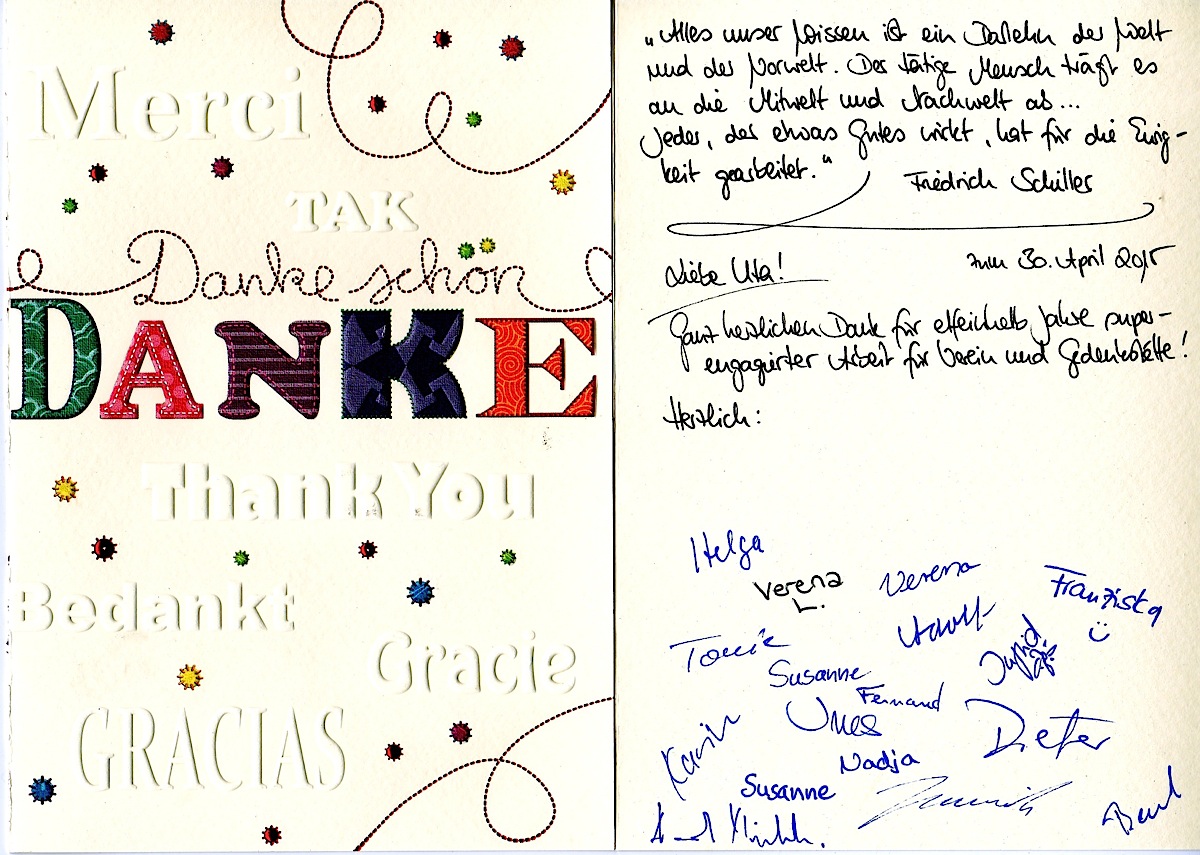 Merci
TAK
Danke schön
DANKE
Thank You
Bedankt
Gracie
GRACIAS
„Alles unser Wissen ist ein Darlehn der Welt
und der Vorwelt. Der tätige Mensch trägt es
an die Mitwelt und Nachwelt ab...
Jeder, der etwas Gutes wirkt, hat für die Ewig-
keit gearbeitet."
Friedrich Schiller
zum 30. April 2015
Liebe Uta!
Ganz herzlichen Dank für elfeinhalb Jahre super-
engagierter Arbeit für Verein und Gedenkstätte!
Herzlich:
Helga
Verena
L.
Verena
Franziska
Adolf
Ingrid
Susanne
Fernand
Ines
Dieter
Karin
Nadja
Susanne